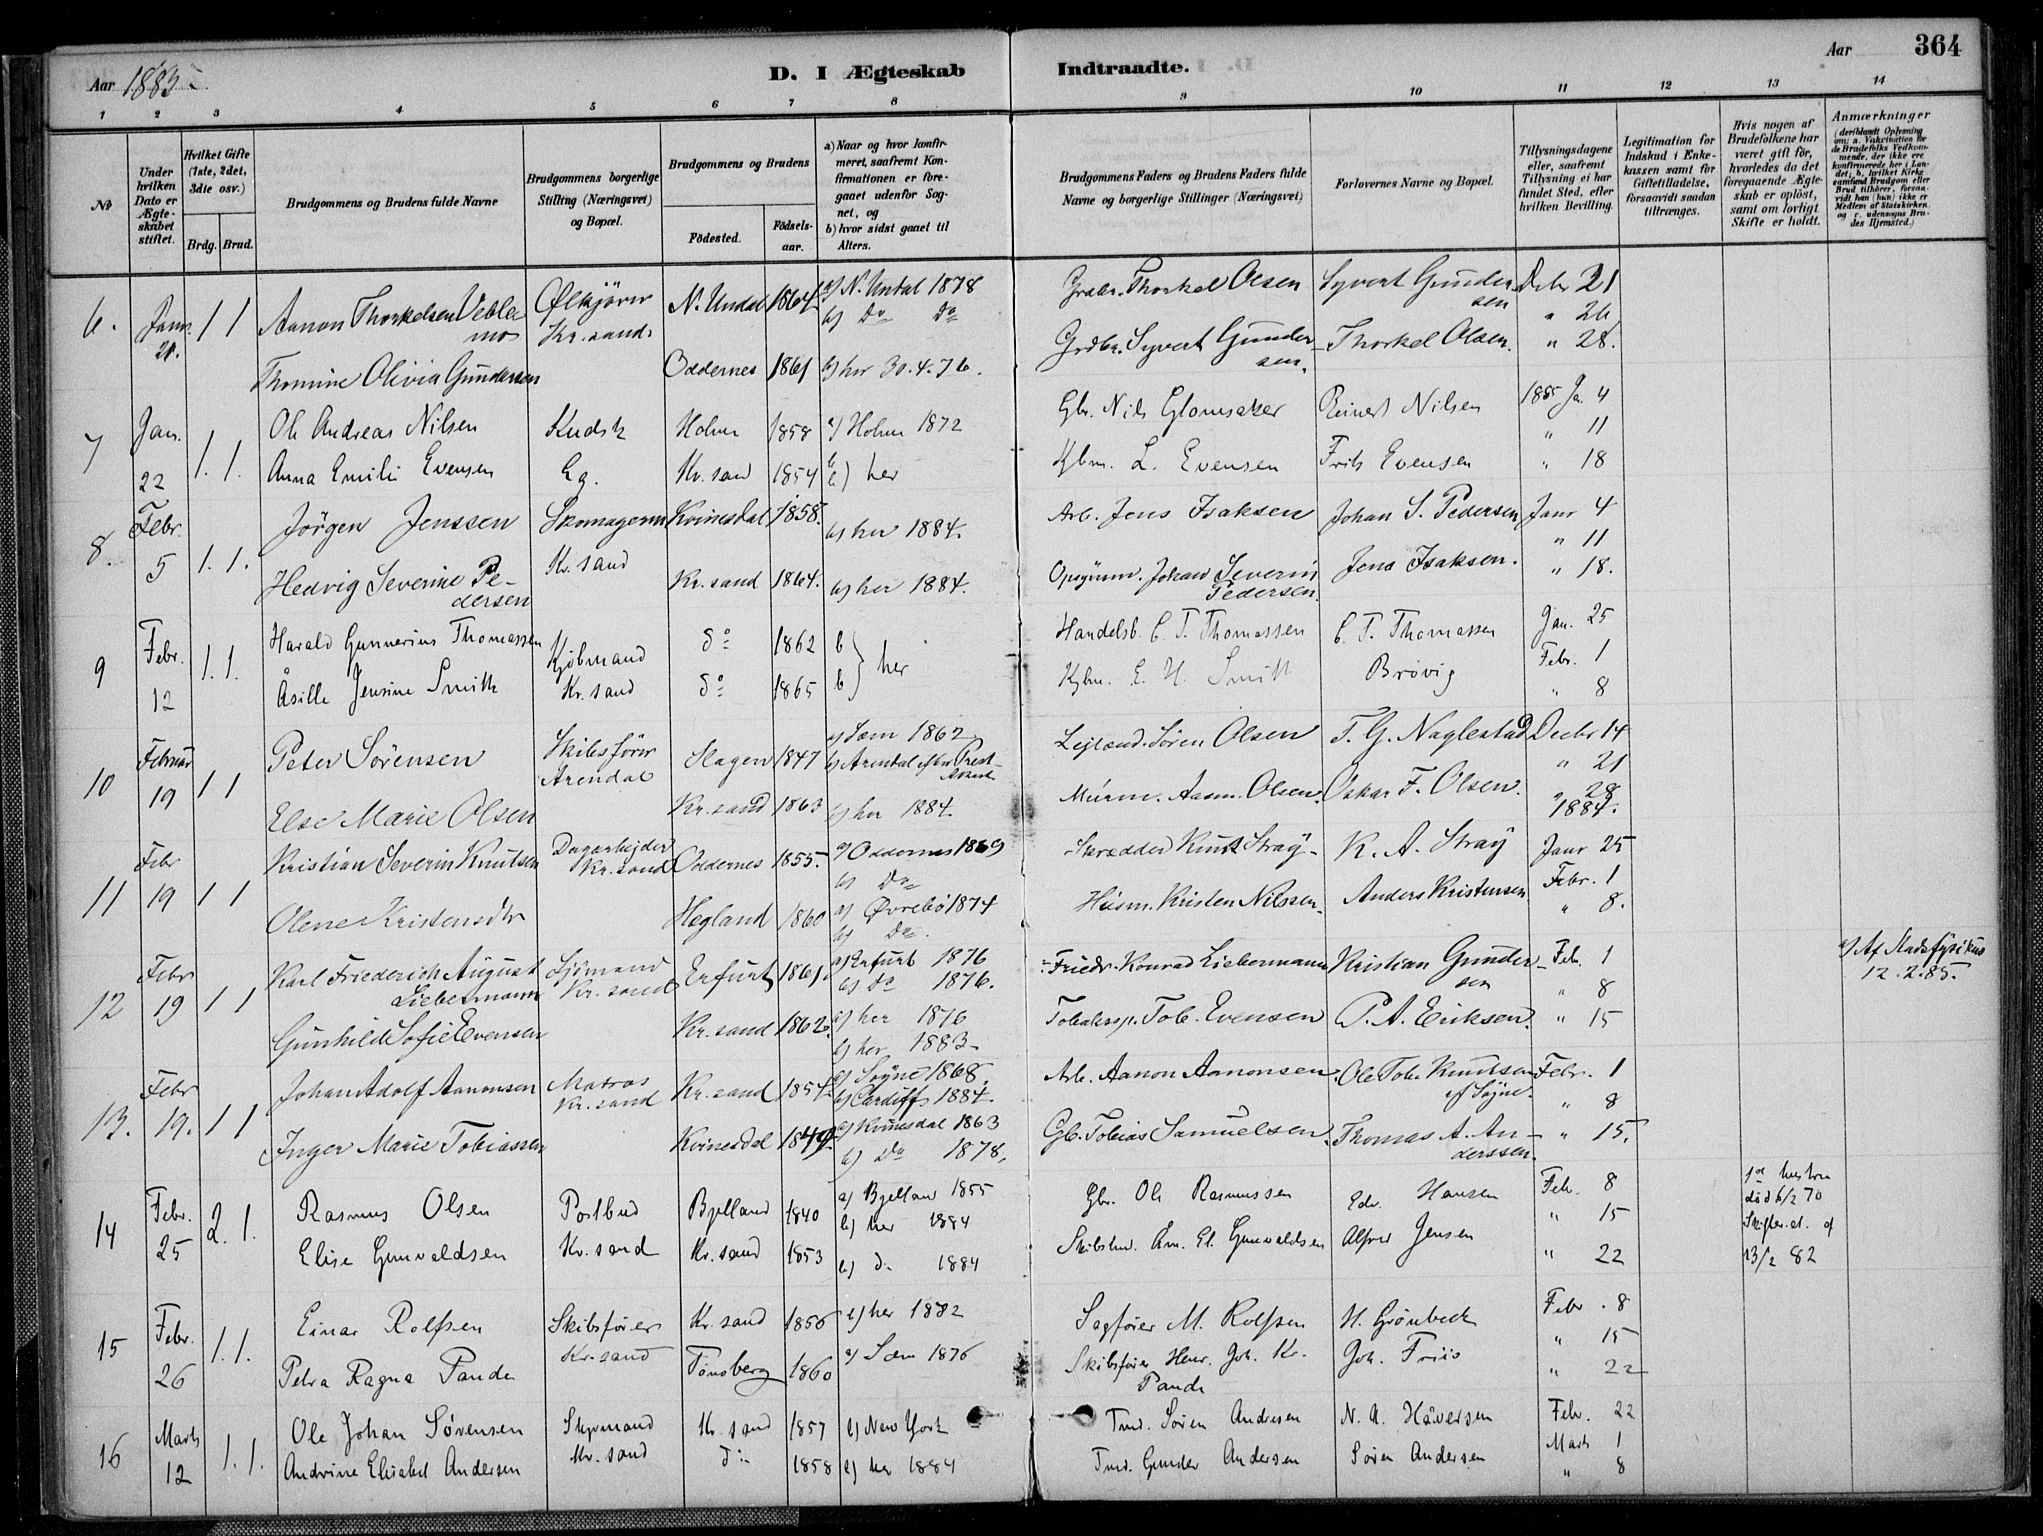 Aar 1885
D. I Ægteskab
Indtraadte.
Aar
364
1 2 3 4 5 6 7 8 9 10 11 12 13 14
No
Under hvilken Dato er Ægteskabet stiftet.
Hvilket Gifte (1ste, 2det, 3die osv.)
Brdg. Brud.
Brudgommens og Brudens fulde Navne
Brudgommens borgerlige Stilling (Næringsvei) og Bopæl.
Brudgommens og Brudens
Födested.
Födselsaar.
a) Naar og hvor konfirmeret, saafremt Konfirmationen er foregaaet udenfor Sognet, og
b) hvor sidst gaaet til Alters.
Brudgommens Faders og Brudens Faders fulde Navne og borgerlige Stillinger (Næringsvei)
Forlovernes Navne og Bopæl.
Tillysningsdagene eller, saafremt Tillysning ei har fundet Sted, efter hvilken Bevilling.
Legitimation for Indskud i Enkekassen samt for Giftetilladelse, forsaavidt saadan tiltrænges.
Hvis nogen af Brudefolkene har været gift för, hvorledes da det foregaaende Ægteskab er oplöst, samt om lovligt Skifte er holdt.
Anmærkninger (deriblandt Oplysning om: a. Vakcination for de Brudefolks Vedkommende, der ikke ere konfirmerede her i Landet; b. hvilket Kirkesamfund Brudgom eller Brud tilhörer, forsaavidt han (hun) ikke er Medlem af Statskirken, og c. udensogns Brudes Hjemsted.)
6. Janr 21. 1 1 Aanon Thorkelsen Veblemo Ølkjører Kr.sand. N. Undal 1864 a) N. Undal 1878 b) Do Do Grdbr. Thorkel Olsen Syvert Gundersen Debr 21
" 26
Thomine Olivia Gundersen Oddernes 1861 a) her 30.4.76. Grdbr. Syvert Gundersen. Thorkel Olsen. " 28.
7 Jan. 22 1. 1. Ole Andreas Nilsen Kudsk Eg. Holum 1858 a) Holum 1872 Gbr. Nils Glomsaker Reinert Nilsen 1885 Ja. 4
" 11
Anna Emilie Evensen Kr.sand 1854 b) her Kjbm. L. Evensen Frits Evensen " 18
8. Febr. 5 1. 1. Jörgen Jenssen Skomagersv Kr.sand Kvinesdal 1858. b) her 1884. Arb. Jens Isaksen Johan S. Pedersen Janr 4
" 11
Hedvig Severine Pedersen Kr.sand 1864. b) her 1884. Opsynsm. Johan Severin Pedersen. Jens Isaksen. " 18.
9 Febr. 12 1. 1. Harald Gunnerius Thomassen Kjöbmand Kr.sand do 1862 b her Handelsb. C. T. Thomassen C. T. Thomassen Jan. 25
Febr. 1
Åsille Jensine Smith do 1865 b Kjbm. E. H. Smith Brövig " 8
10 Februar 19 1 1 Peter Sörensen Skibsförer Arendal Slagen 1847 a) Sem 1862 b) Arendal Lejlænd. Sören Olsen T. G. Naglestad Decbr 14
" 21
Else Marie Olsen Kr.sand 1863 b) her 1884. Murm. Aanon Olsen. Oskar F. Olsen. " 28 1884.
11 Febr 19 1 1 Kristian Severin Knutsen Dagarbejder Kr.sand Oddernes 1855. a) Oddernes 1869 b) Do Skrædder Knut Stray K. A. Stray Janr 25
Febr. 1
Olene Kristensdtr Hegland 1860 a) Øvrebö 1874 b) Do. Husm. Kristen Nilssen. Anders Kristensen " 8.
12 Febr 19 1 1 Karl Friederich August Liebermann Sjömand Kr.sand Erfurt 1861. a) Erfurt 1876 b) Do 1876. Friedr. Konrad Liebermann Kristian Gundersen Feb. 1
" 8
a) Af Stadsfysikus 12.2.85.
Gunhild Sofie Evensen Kr.sand 1862. a) her 1876 b) her 1883. Tobaksp. Tob. Evensen P. A. Eriksen. " 15
13. Febr 19. 1 1 Johan Adolf Aanonsen Matros Kr.sand Kr.sand 1854. a) Søgne 1868. b) Cardiff 1884. Arb. Aanon Aanonsen. Ole Tobr. Knudsen af Søgne. Febr. 1
" 8
Inger Marie Tobiassen Kvinesdal 1849. a) Kvinesdal 1863 b) Do 1878. Gb. Tobias Samuelsen. Thomas A. Anderssen. " 15.
14 Febr. 25 2. 1. Rasmus Olsen Postbud Kr.sand Bjelland 1840 a) Bjelland 1855 b) her 1884 Gbr. Ole Rasmussen Edv. Hansen Febr. 8
" 15
1ste hustru död 6/2 70 Skifteat. af 13/2 82
Elise Gunvaldsen Kr.sand 1853 b) do 1884 Skibstm. Am. El. Gunvaldsen Alfred Jensen " 22
15 Febr. 26 1. 1. Einar Rolfsen Skibsförer Kr.sand Kr.sand 1856 b) her 1882 Sagförer M. Rolfsen H. Grönbeck Febr. 8
" 15
Petra Ragna Pande Tönsberg 1860 a) Sem 1876 Skibsförer Henr. Joh. Kr. Pande Joh. Friis " 22
16 Marts 12 1. 1. Ole Johan Sörensen Styrmand Kr.sand Kr.sand 1857 b) New York Tmd. Sören Andresen N. A. Håversen Febr. 22
Marts 1
Andrine Elisabet Andersen do 1858 b) her 1884 Tmd. Gunder Andersen Sören Andersen " 8